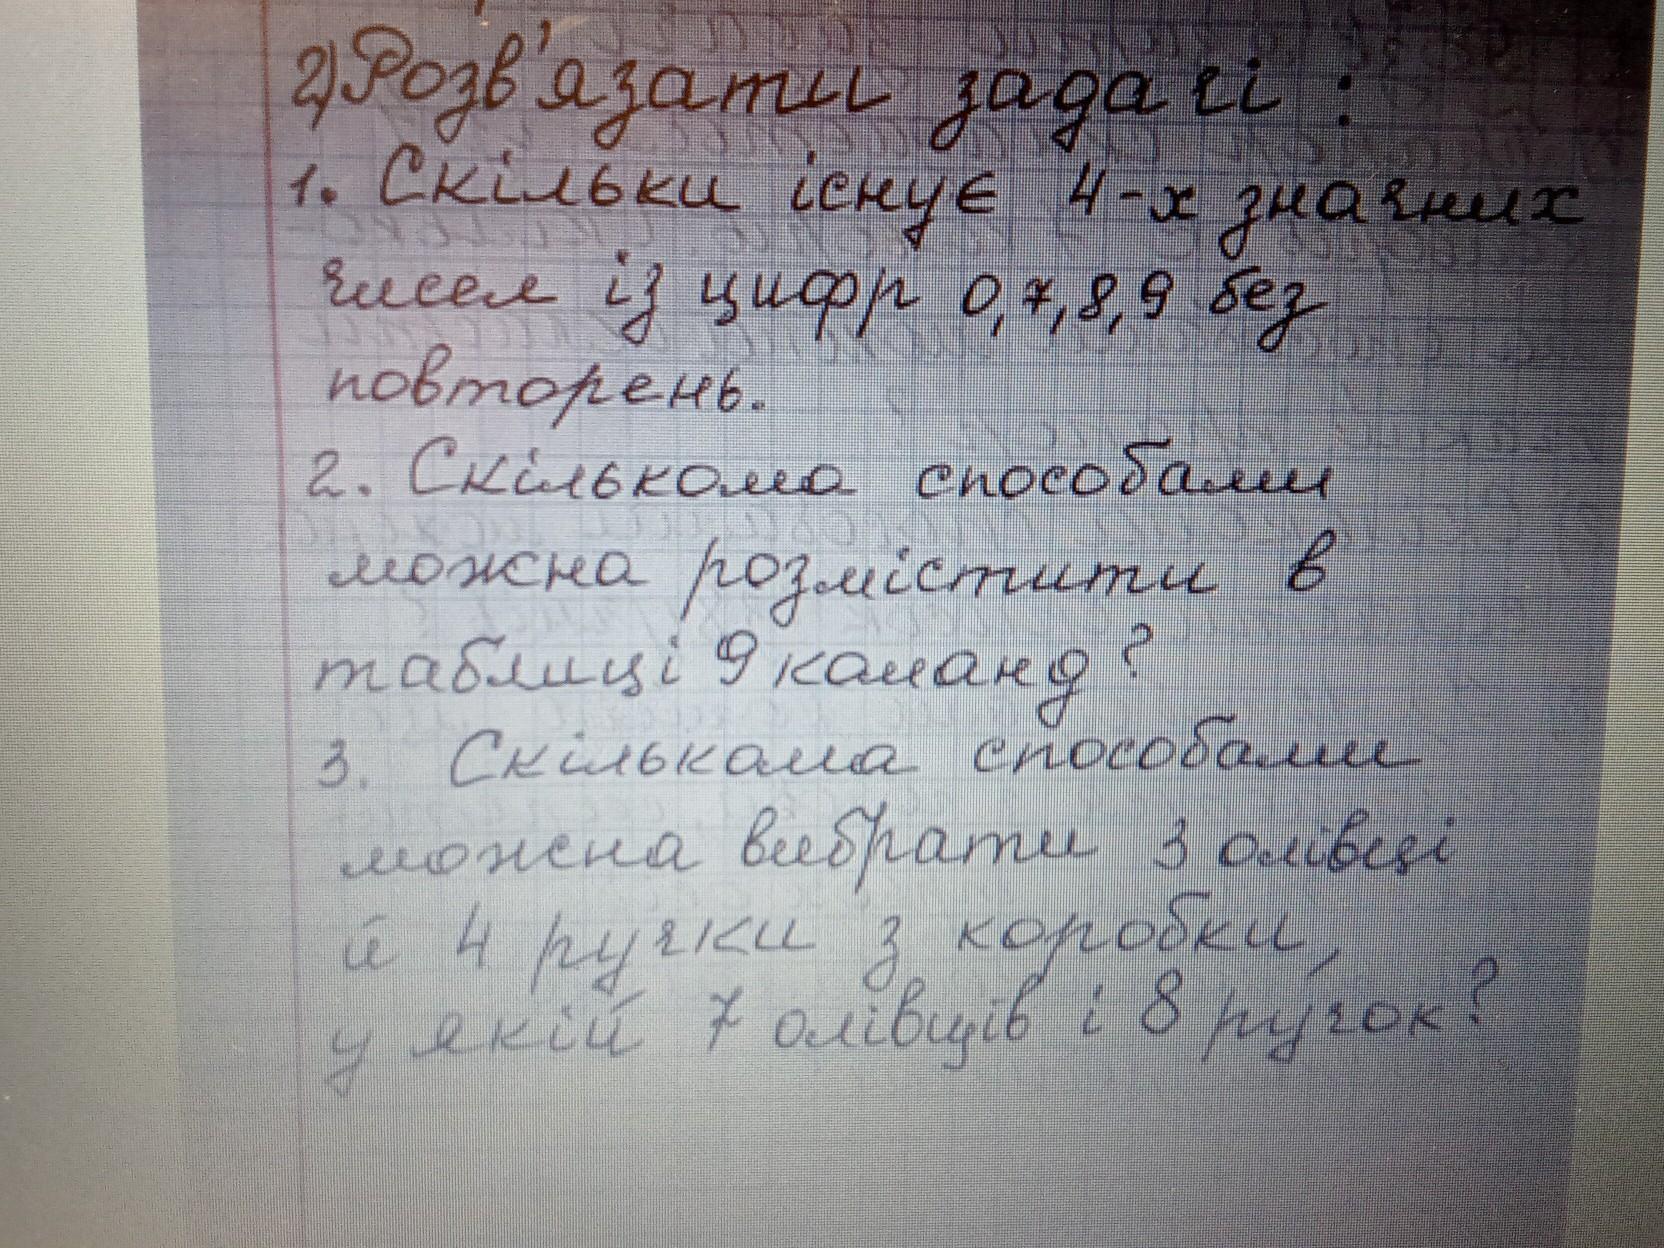 2) Розв'язати задачі :
1. Скільки існує 4-х значних
чисел із цифр 0,7,8,9 без
повторень.
2. Скількома способами
можна розмістити в
таблиці 9 команд?
3. Скількама способами
можна вибрати 3 олівці
й 4 ручки з коробки,
у якій 7 олівців і 8 ручок?